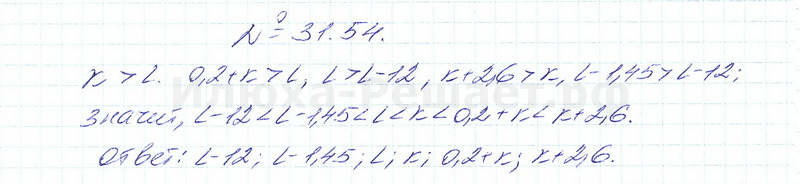 № 31.54.
к > L. 0,2+к > L, L > L-12, к+2,6 > к, L-1,45 > L-12;
значит, L-12 < L-1,45 < L < к < 0,2+к < к+2,6.
Ответ: L-12; L-1,45; L; к; 0,2+к; к+2,6.
Илюха-Решает.рф